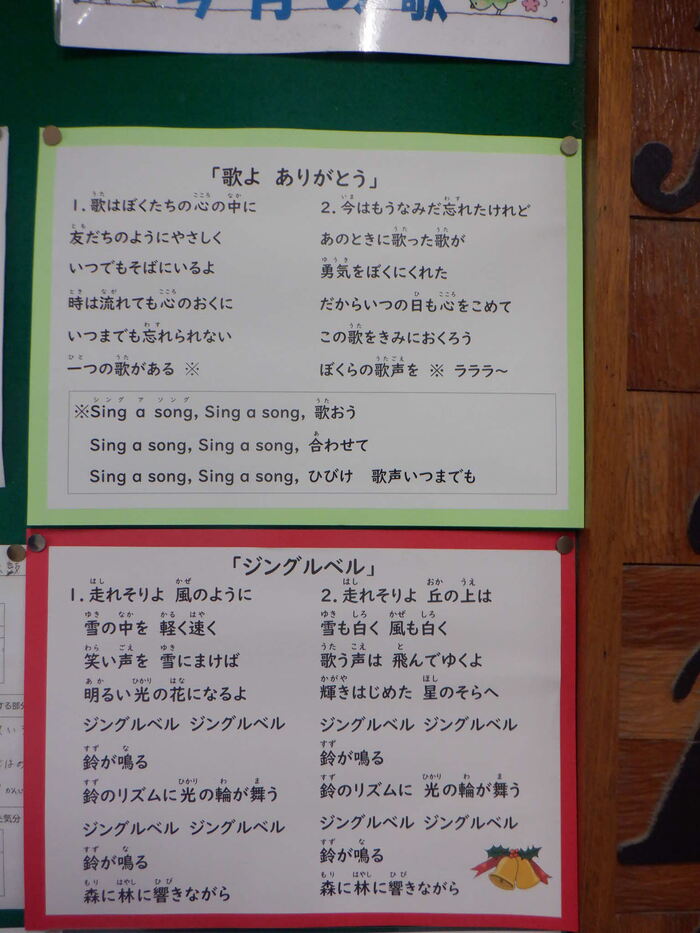 今月の歌
「歌よ ありがとう」
1. 歌はぼくたちの心の中に
友だちのようにやさしく
いつでもそばにいるよ
時は流れても心のおくに
いつまでも忘れられない
一つの歌がある ※
2. 今はもうなみだ忘れたけれど
あのときに歌った歌が
勇気をぼくにくれた
だからいつの日も心をこめて
この歌をきみにおくろう
ぼくらの歌声を ※ ラララ～
※Sing a song, Sing a song, 歌おう
Sing a song, Sing a song, 合わせて
Sing a song, Sing a song, ひびけ 歌声いつまでも
「ジングルベル」
1. 走れそりよ 風のように
雪の中を 軽く速く
笑い声を 雪にまけば
明るい光の花になるよ
ジングルベル ジングルベル
鈴が鳴る
鈴のリズムに光の輪が舞う
ジングルベル ジングルベル
鈴が鳴る
森に林に響きながら
2. 走れそりよ 丘の上は
雪も白く 風も白く
歌う声は 飛んでゆくよ
輝きはじめた 星のそらへ
ジングルベル ジングルベル
鈴が鳴る
鈴のリズムに 光の輪が舞う
ジングルベル ジングルベル
鈴が鳴る
森に林に響きながら